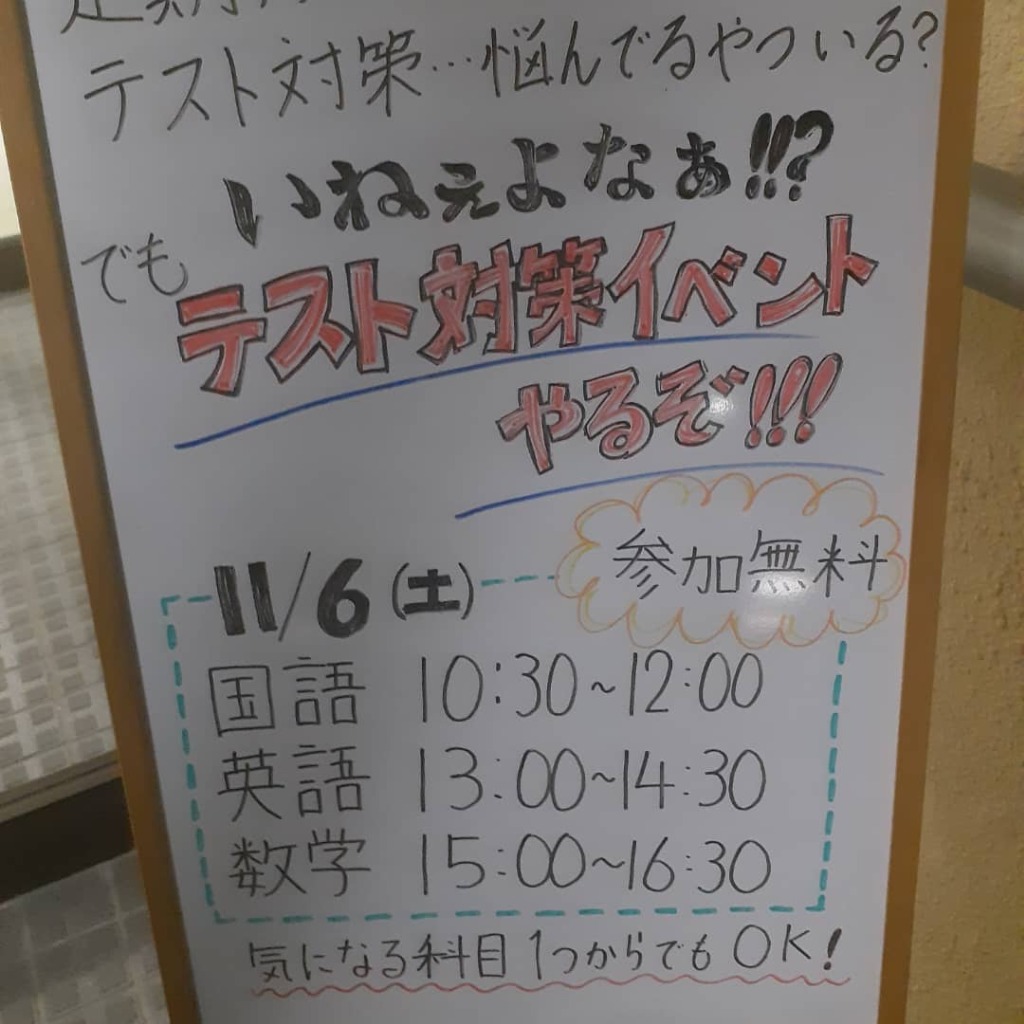 テスト対策…悩んでるやついる?
いねぇよなぁ!!?
でも
テスト対策イベント
やるぞ!!!
参加無料
11/6(土)
国語 10:30~12:00
英語 13:00~14:30
数学 15:00~16:30
気になる科目1つからでもOK!